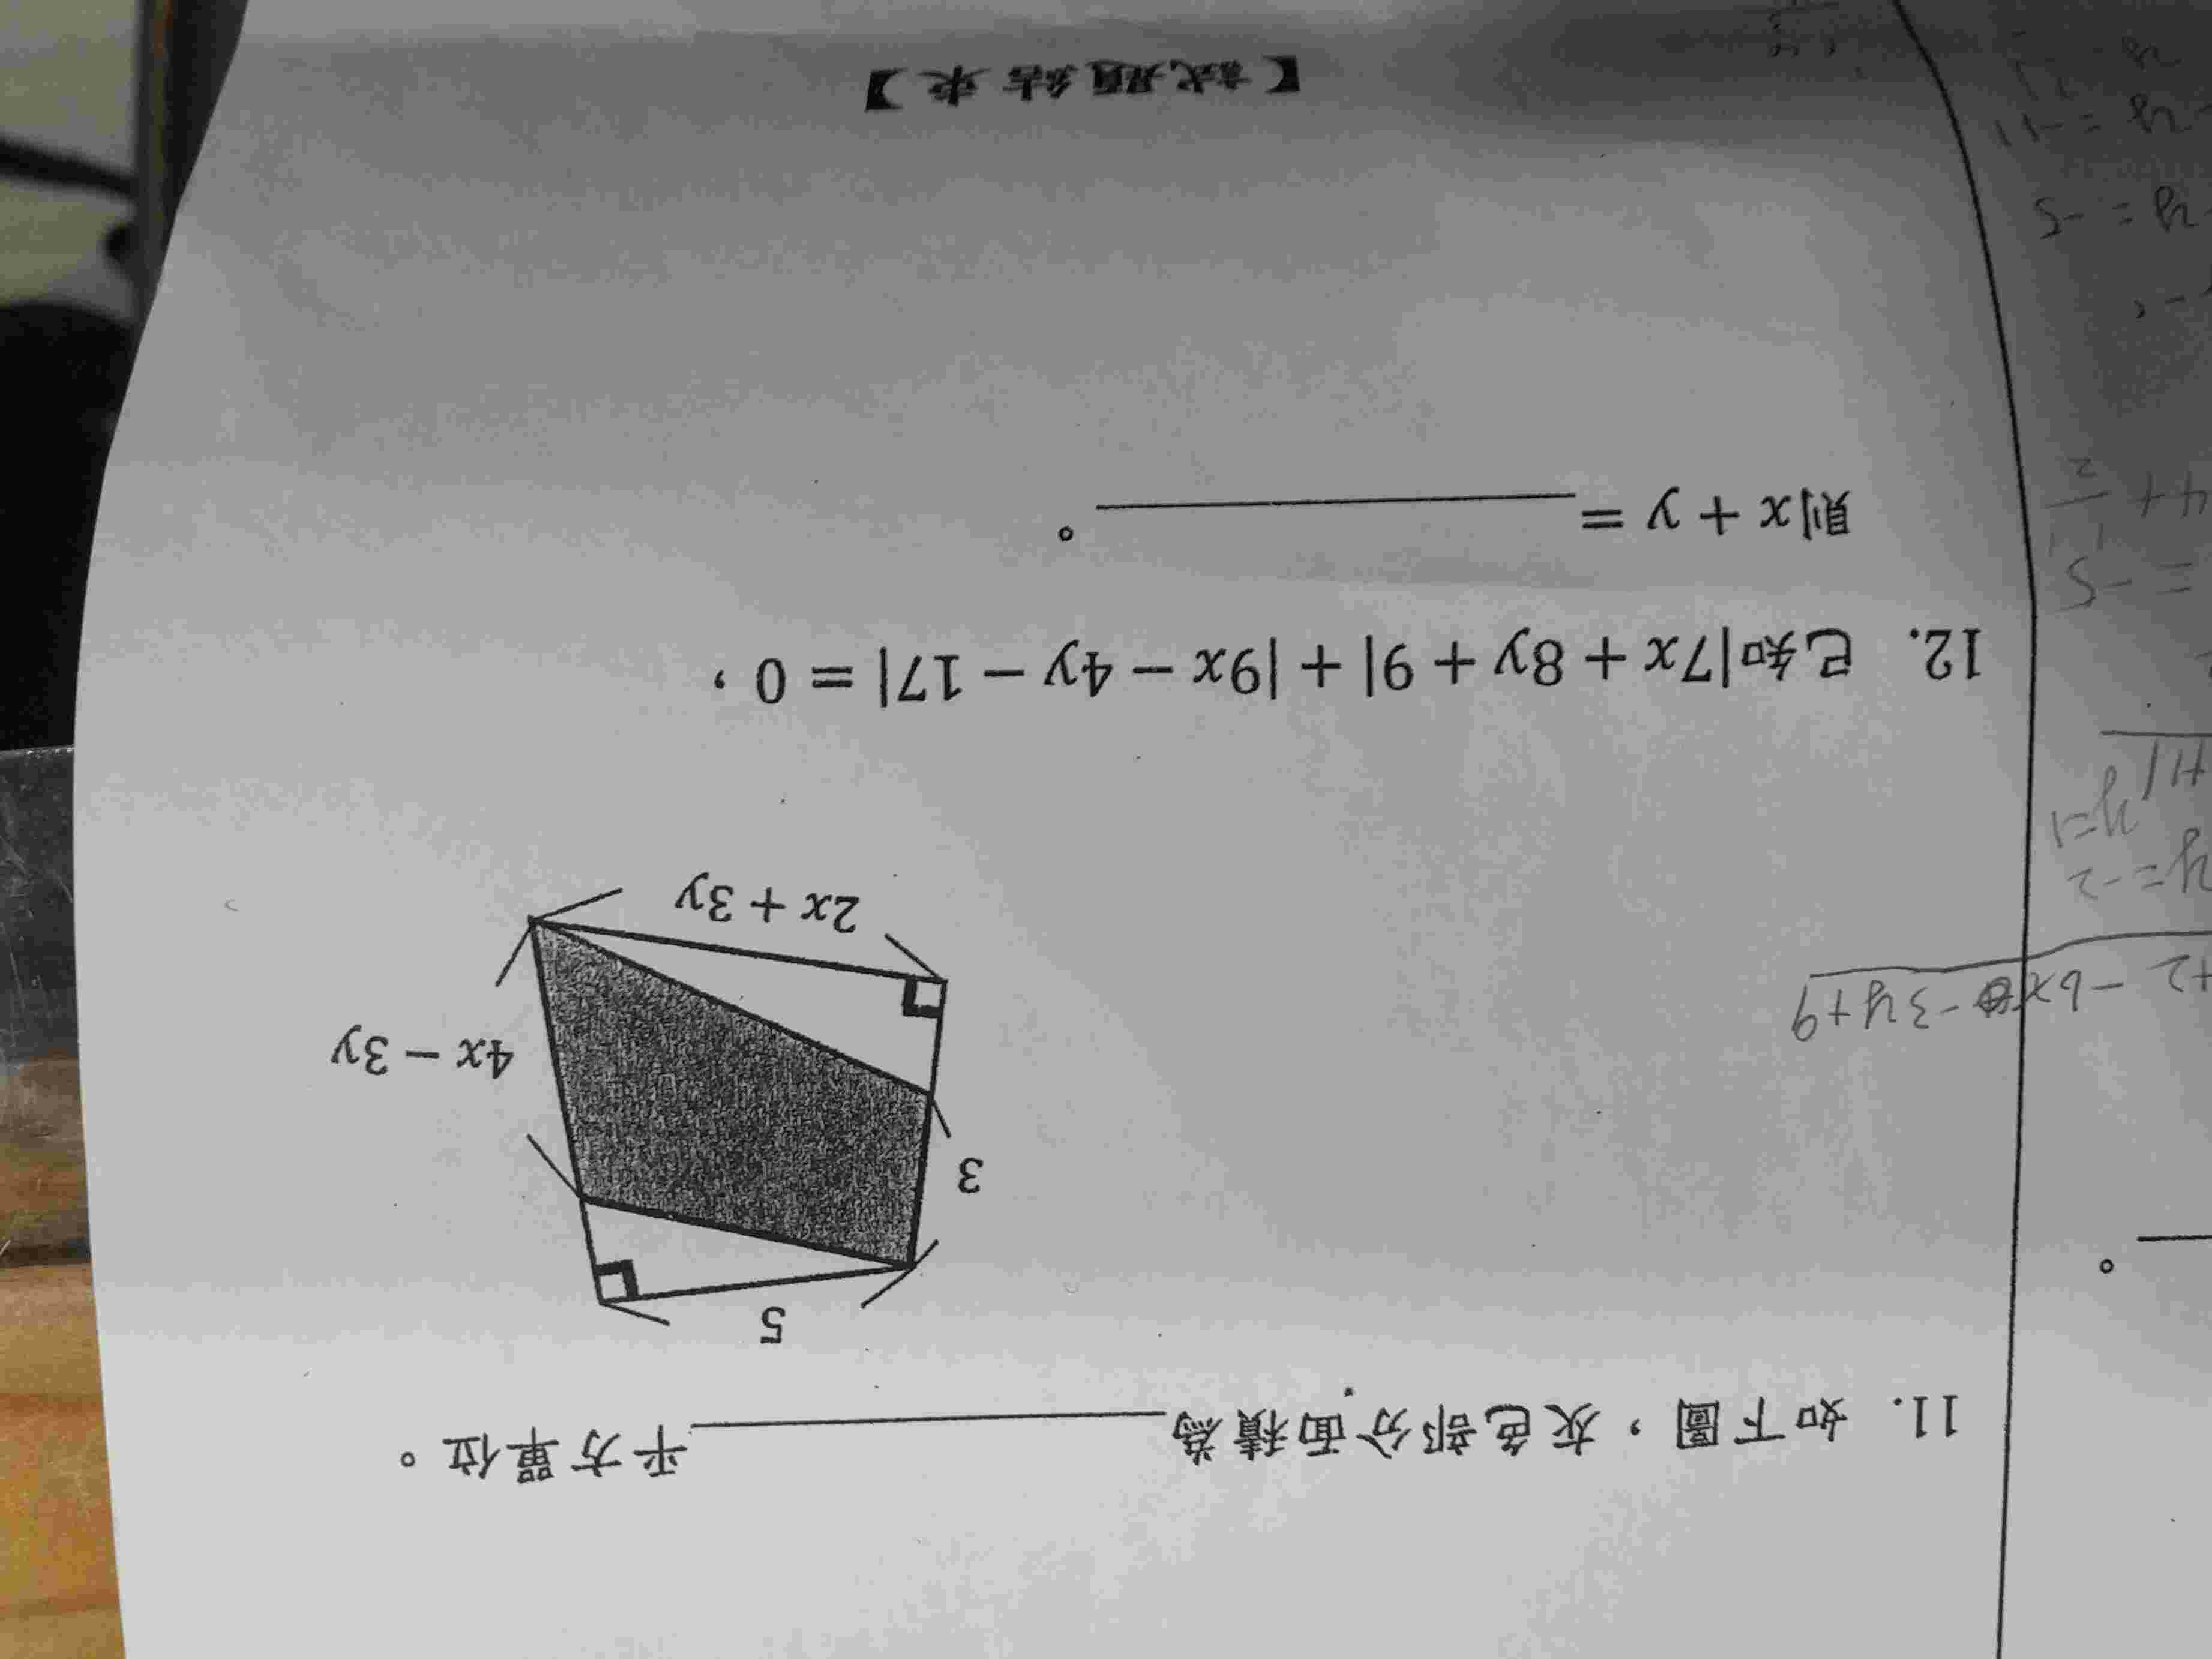 11. 如下圖，灰色部分面積為__________平方單位。
5
3
4x − 3y
2x + 3y
12. 已知|7x + 8y + 9| + |9x − 4y − 17| = 0，
則x + y = __________。
【試題結束】
+2 -6x -3y+9
y=-2
y=1
+11
= -5
4+
y = -5
y = -11